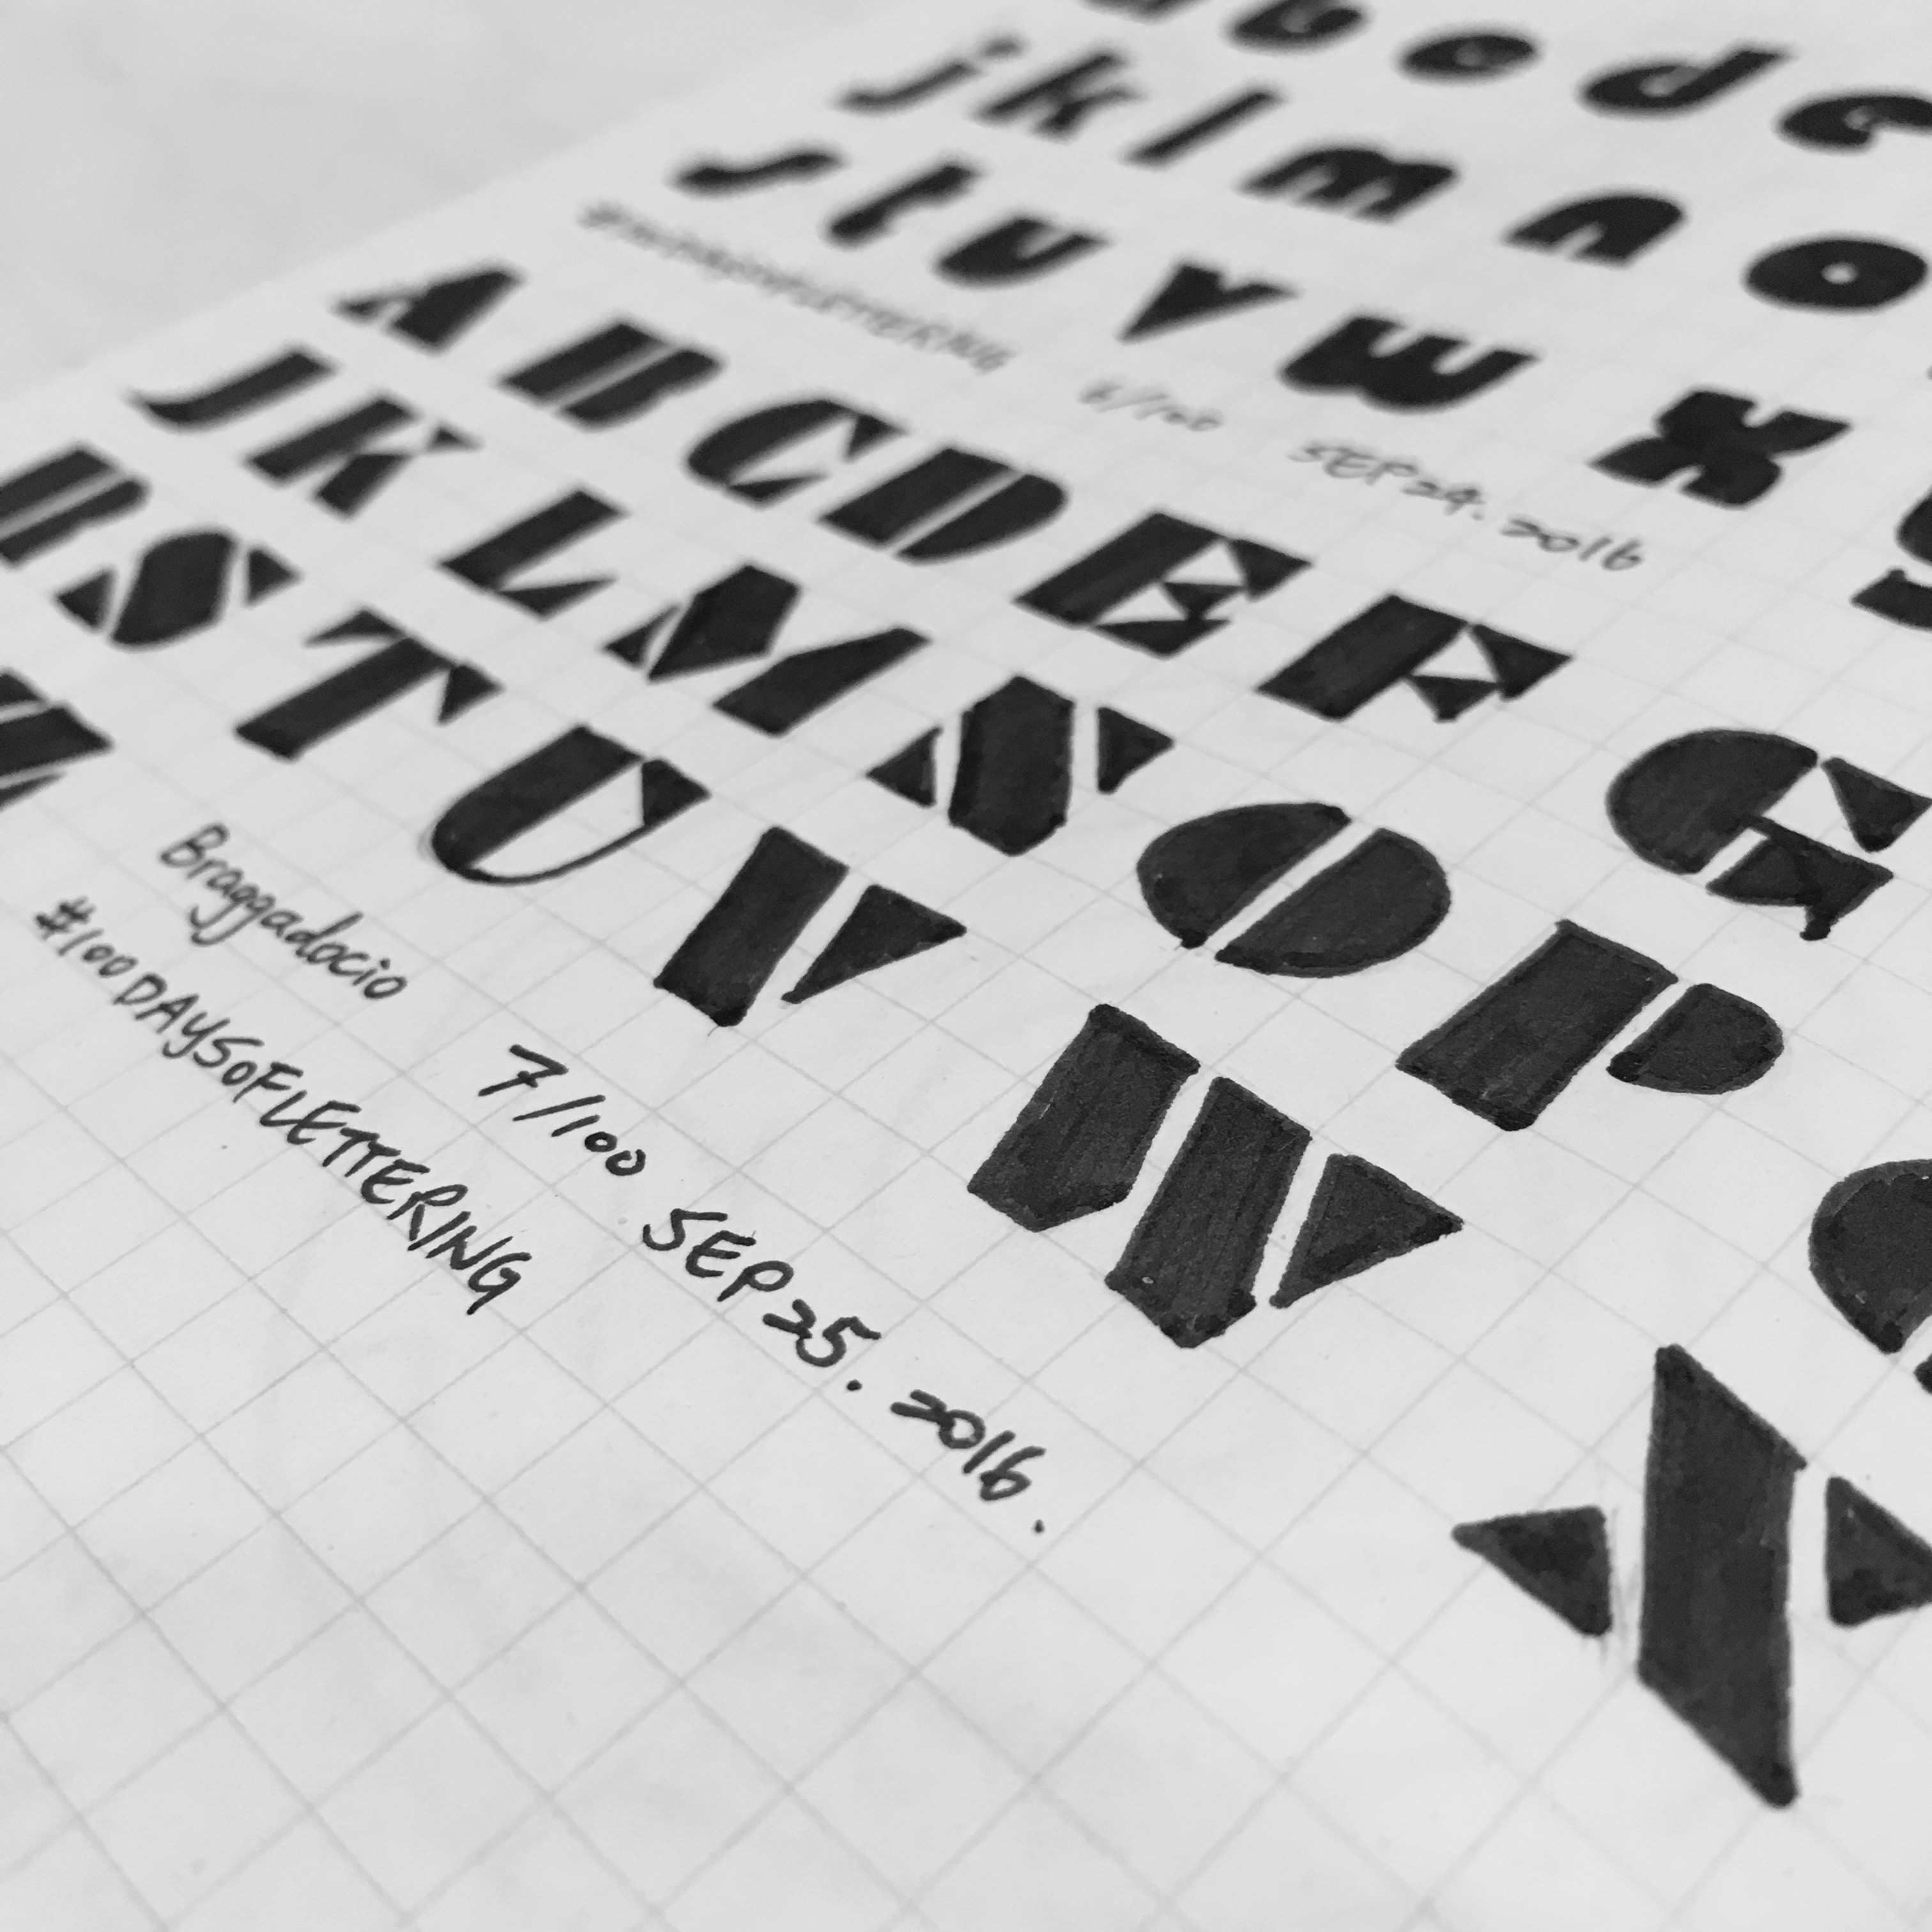 a b c d e
j k l m n o
s t u v w x y
#100DAYSOFLETTERING 6/100 SEP24.2016
A B C D E F G
J K L M N O P Q
R S T U V W X
Braggadocio 7/100 SEP25.2016.
#100DAYSOFLETTERING